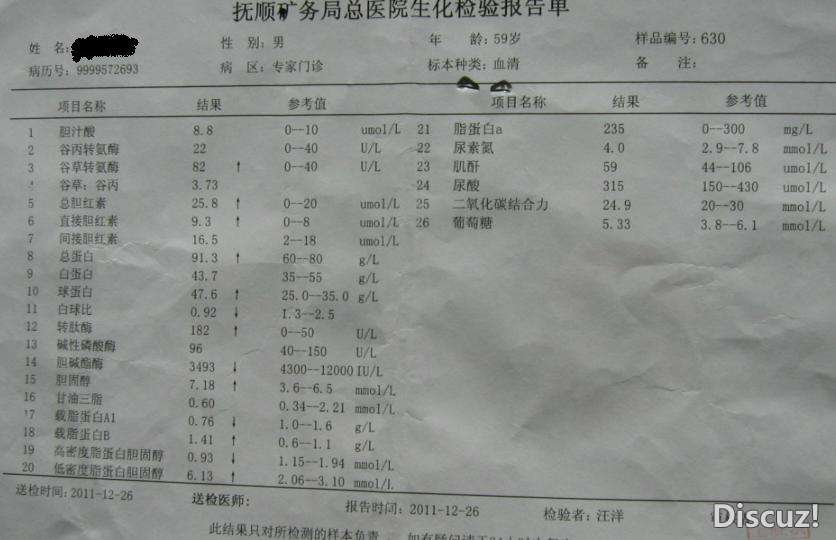 抚顺矿务局总医院生化检验报告单
姓 名: 性 别: 男 年 龄: 59岁 样品编号: 630
病历号: 9999572693 病 区: 专家门诊 标本种类: 血清 备 注:
项目名称 结果 参考值 项目名称 结果 参考值
1 胆汁酸 8.8 0--10 umol/L 21 脂蛋白a 235 0--300 mg/L
2 谷丙转氨酶 22 0--40 U/L 22 尿素氮 4.0 2.9--7.8 mmol/L
3 谷草转氨酶 82 ↑ 0--40 U/L 23 肌酐 59 44--106 umol/L
谷草: 谷丙 3.73 24 尿酸 315 150--430 umol/L
5 总胆红素 25.8 ↑ 0--20 umol/L 25 二氧化碳结合力 24.9 20--30 mmol/L
6 直接胆红素 9.3 ↑ 0--8 umol/L 26 葡萄糖 5.33 3.8--6.1 mmol/L
7 间接胆红素 16.5 2--18 umol/L
8 总蛋白 91.3 ↑ 60--80 g/L
9 白蛋白 43.7 35--55 g/L
10 球蛋白 47.6 ↑ 25.0--35.0 g/L
11 白球比 0.92 ↓ 1.3--2.5
12 转肽酶 182 ↑ 0--50 U/L
13 碱性磷酸酶 96 40--150 U/L
14 胆碱酯酶 3493 ↓ 4300--12000 IU/L
15 胆固醇 7.18 ↑ 3.6--6.5 mmol/L
16 甘油三脂 0.60 0.34--2.21 mmol/L
17 载脂蛋白A1 0.76 ↓ 1.0--1.6 g/L
18 载脂蛋白B 1.41 ↑ 0.6--1.1 g/L
19 高密度脂蛋白胆固醇 0.93 ↓ 1.15--1.94 mmol/L
20 低密度脂蛋白胆固醇 6.13 ↑ 2.06--3.10 mmol/L
送检时间: 2011-12-26 送检医师: 报告时间: 2011-12-26 检验者: 汪洋
此结果只对所检测的样本负责
Discuz!